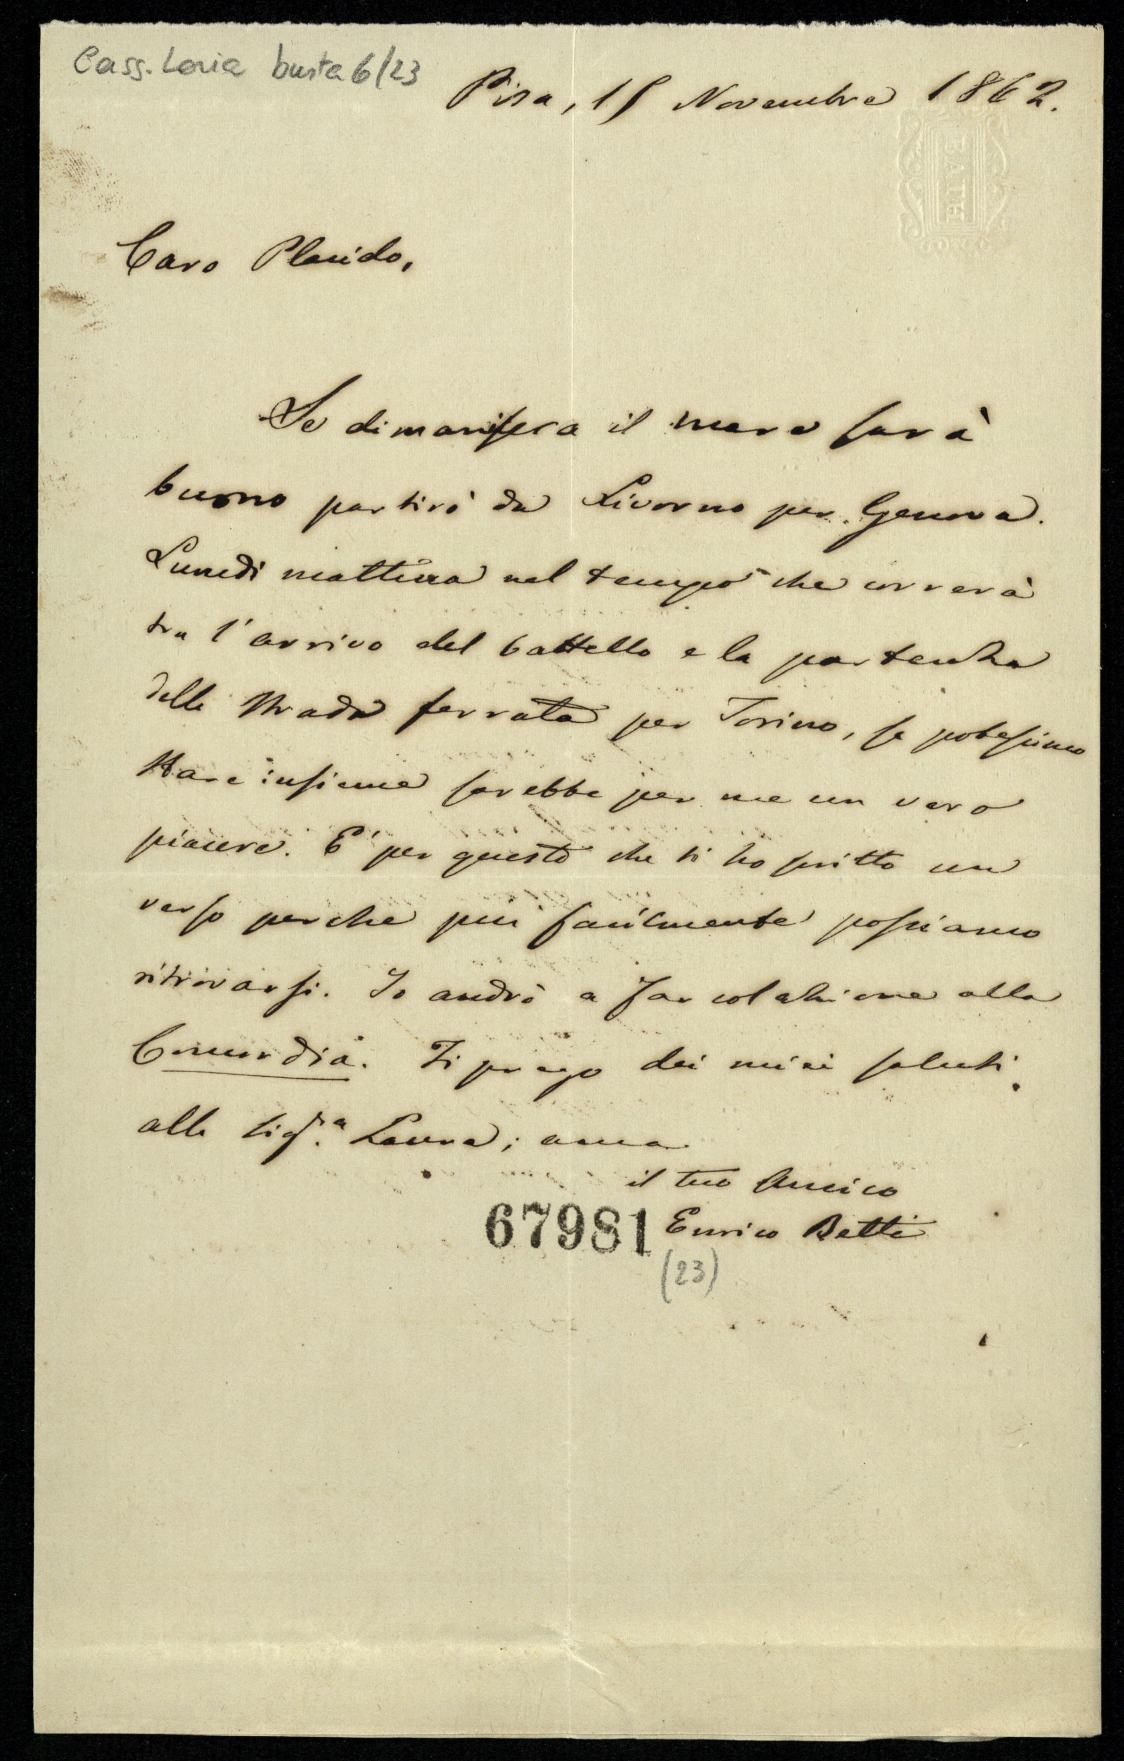 Cass. Loria busta 6/23
Pisa, 15 Novembre 1862.
BATH
Caro Placido,
Se dimani sera il mare sarà
buono partirò da Livorno per Genova.
Lunedi mattina nel tempo che correrà
tra l'arrivo del battello e la partenza
della Strada ferrata per Torino, se potessimo
stare insieme sarebbe per me un vero
piacere. E' per questo che ti ho scritto un
verso perche piu facilmente possiamo
ritrovarsi. Io andrò a far colazione alla
Concordia. Ti prego dei miei saluti
alla Sig.ra Laura; ama
il tuo Amico
67981 Enrico Betti
(23)